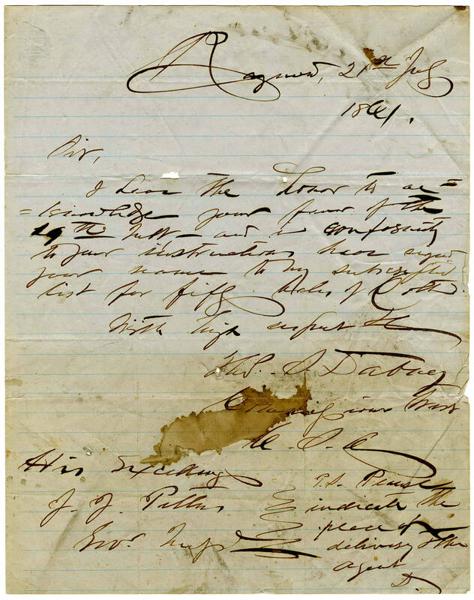 Raymond, 21st July
1861.
Sir,
I have the honor to ac=
=knowledge your favor of the
19th Inst. and in conformity
to your instructions have signed
your name to my subscription
list for fifty Bales of Cotton
With high respect &c
Thos. S. Dabney
Commissioner
C. S. A
His Excellency
J. J. Pettus
Gov. Miss
P.S. Please
indicate the
place of
delivery & the
agent
D.